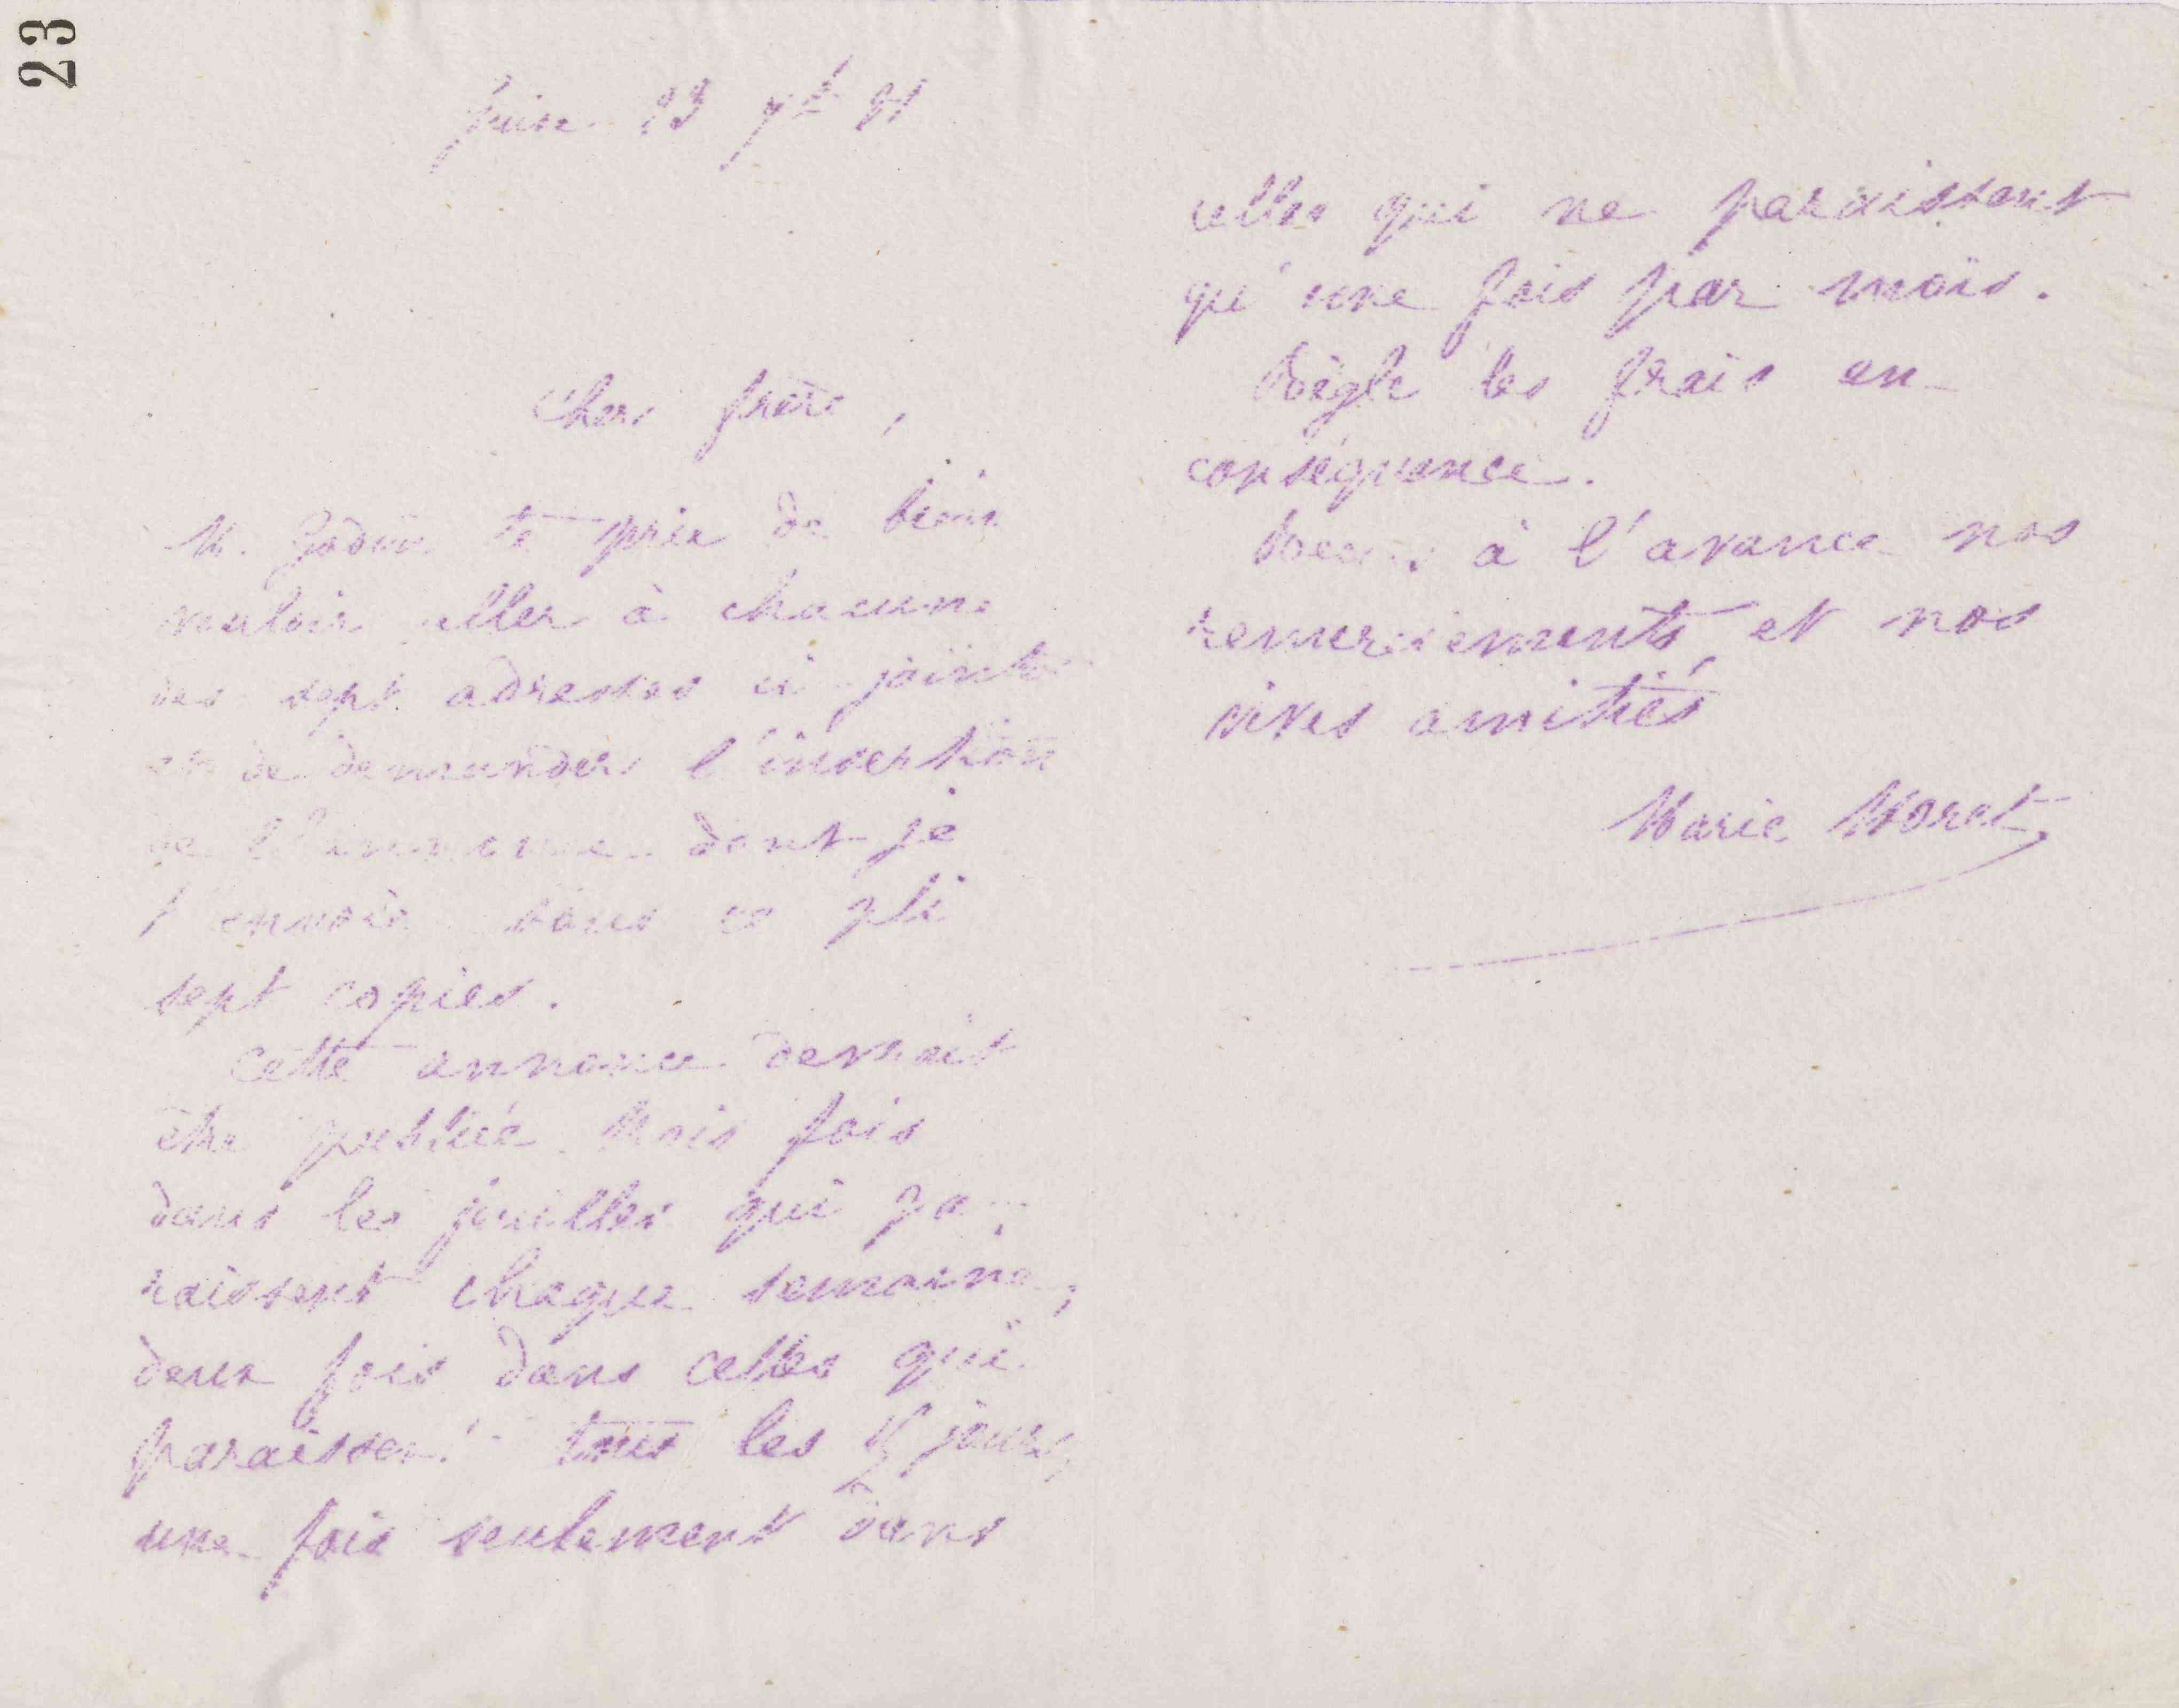 23
Guise 23 7bre 81
Cher frère,
M. Godin te prie de bien
vouloir aller à chacune
des sept adresses ci-jointes
et de demander l'insertion
de l'annonce dont je
t'envoie sous ce pli
sept copies.
Cette annonce devrait
être publiée trois fois
dans les feuilles qui pa-
raissent chaque semaine,
deux fois dans celles qui
paraissent tous les 15 jours,
une fois seulement dans
celles qui ne paraissent
qu'une fois par mois.
Règle les frais en
conséquence.
Reçois à l'avance nos
remerciements et nos
vives amitiés
Marie Moret